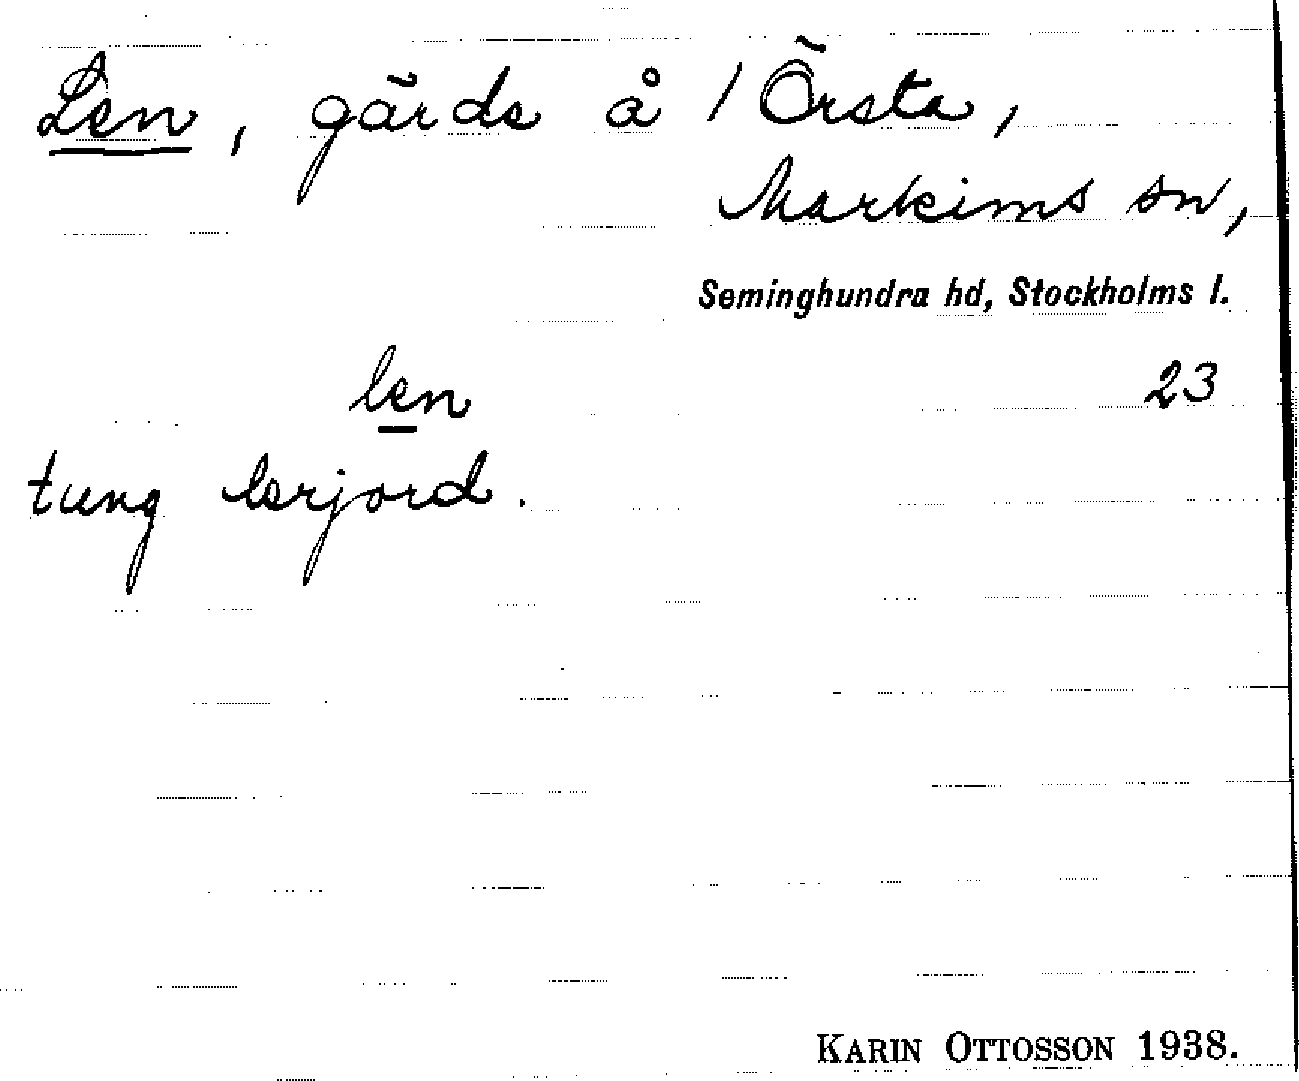 Len, gärde å / Örsta,
Markims sn,
Seminghundra hd, Stockholms l.
len 23
tung lerjord.
KARIN OTTOSSON 1938.